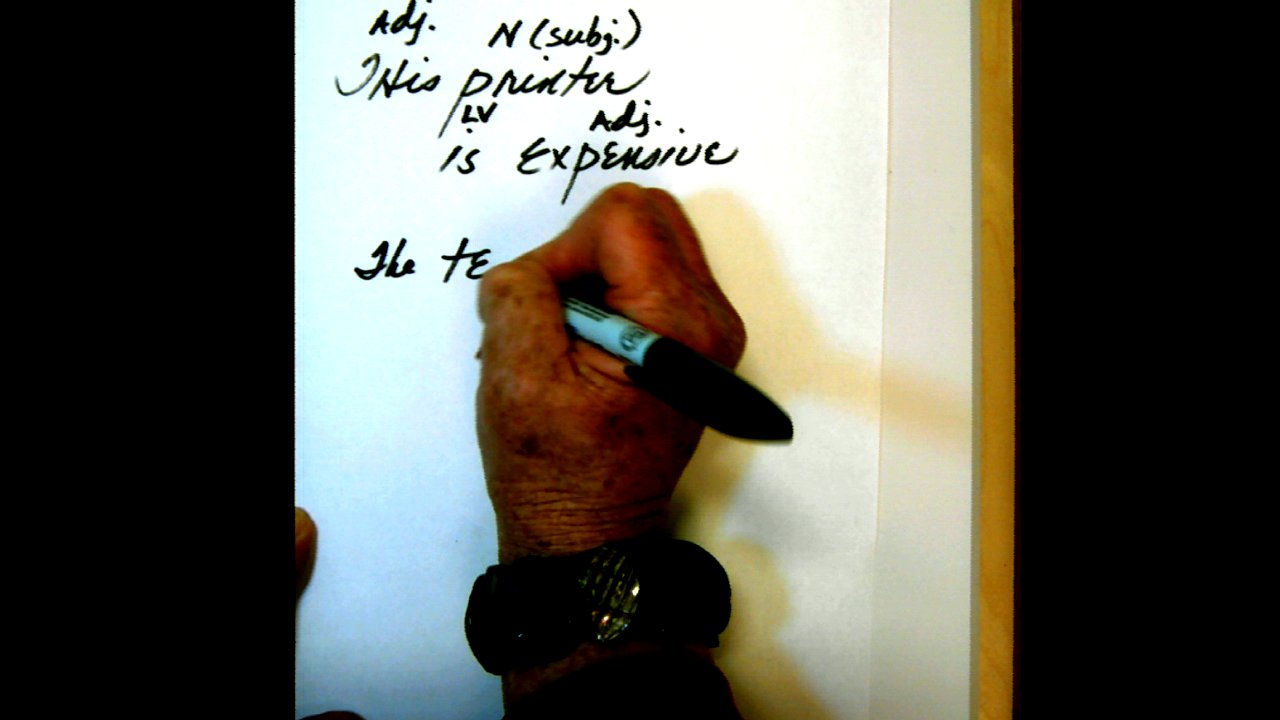 Adj. N (subj.)
THis printer
LV Adj.
is ExpEnsivE
The tE